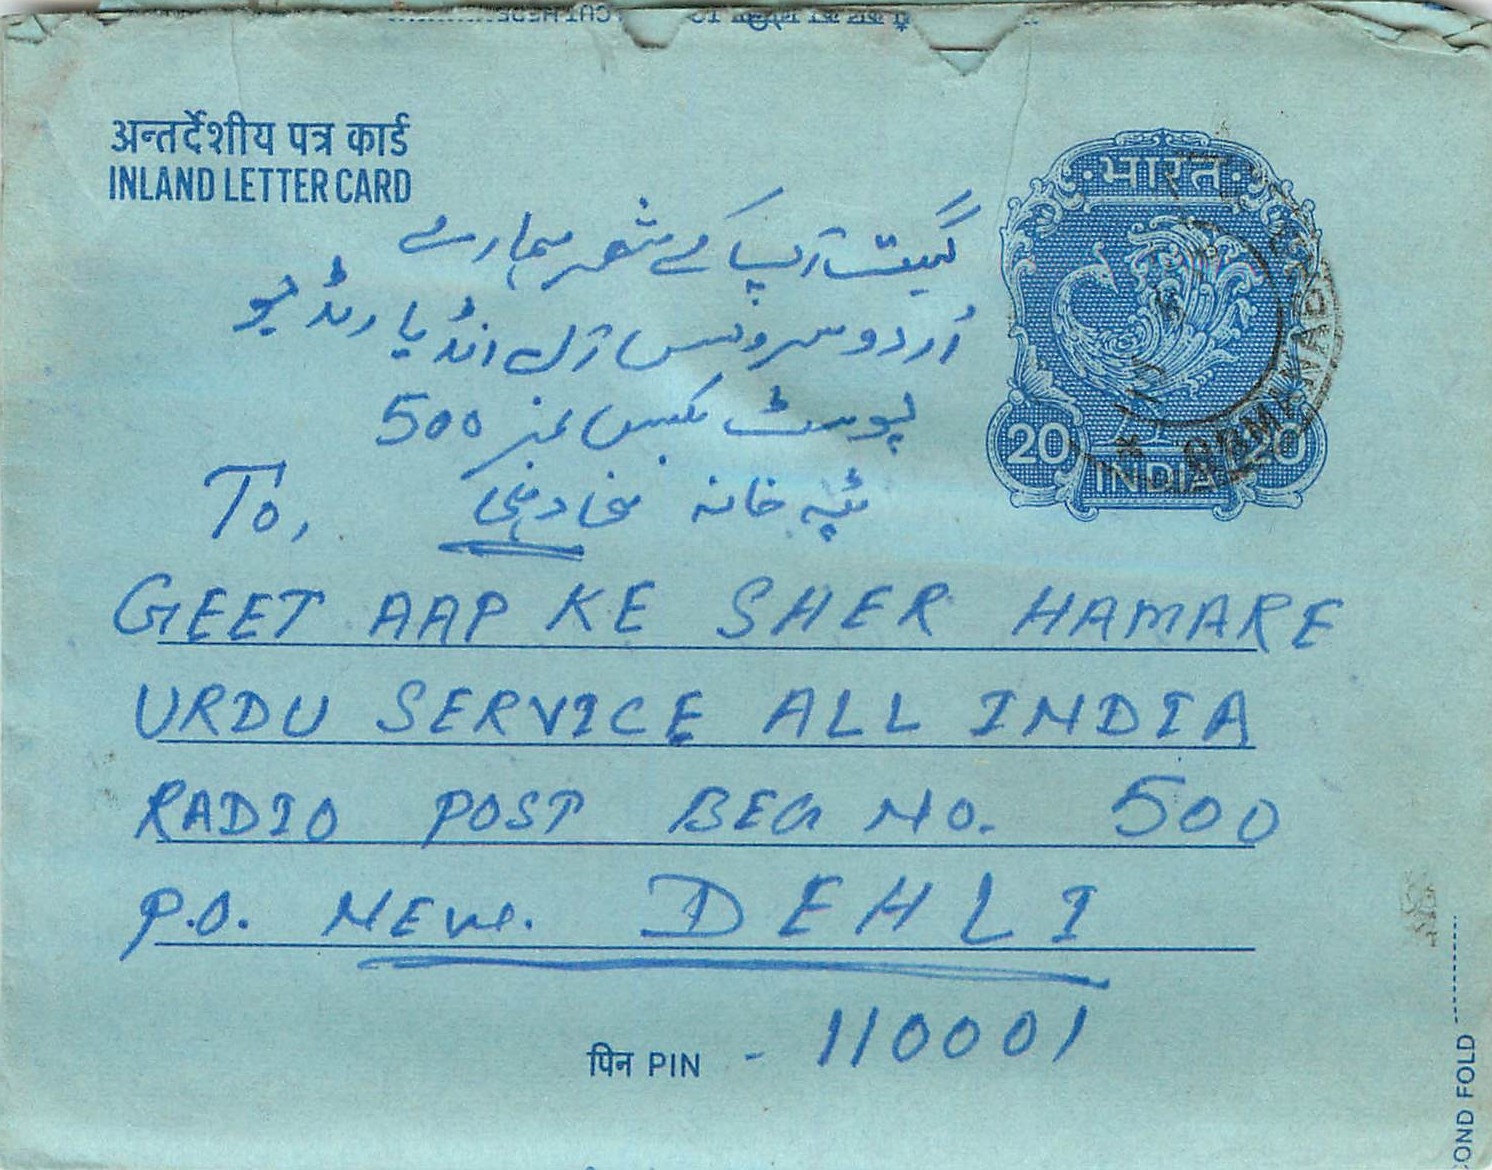 अन्तर्देशीय पत्र कार्ड
INLAND LETTER CARD
भारत
20 20
INDIA
گیت آپ کے شعر ہمارے
اُردو سروس آل انڈیا ریڈیو
پوسٹ بکس نمبر 500
ٹپہ خانہ نئی دہلی
To,
GEET AAP KE SHER HAMARE
URDU SERVICE ALL INDIA
RADIO POST BEG NO. 500
P.O. NEW. DEHLI
पिन PIN - 110001
OND FOLD